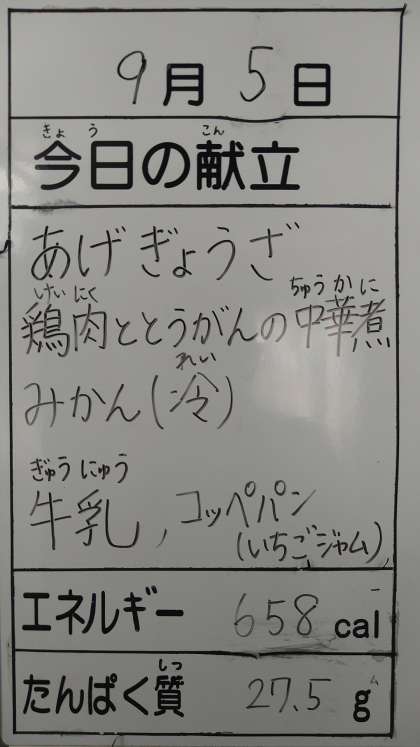 9月5日
きょう こん
今日の献立
あげぎょうざ
けいにく ちゅうかに
鶏肉ととうがんの中華煮
れい
みかん(冷)
ぎゅうにゅう
牛乳,コッペパン
(いちごジャム)
エネルギー 658 cal
しつ
たんぱく質 27.5 g